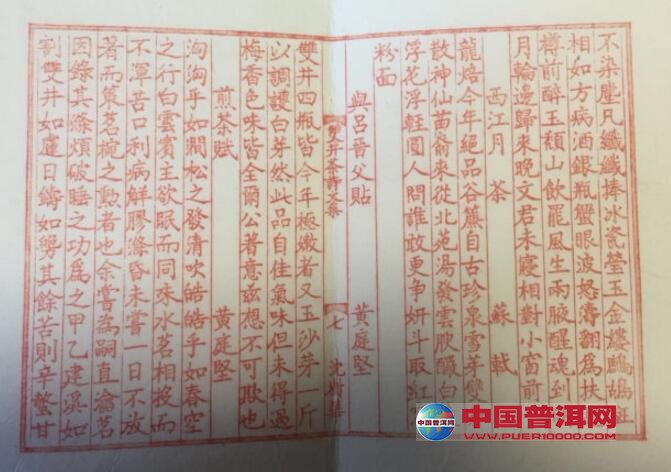 不染塵凡纖纖捧冰瓷瑩玉金縷鷓鴣斑
相如方病酒銀瓶蟹眼波怒濤翻為扶
樽前醉玉頹山飲罷風生兩腋醒魂到
月輪邊歸來晚文君未寢相對小窗前
西江月 茶 蘇軾
龍焙今年絕品谷簾自古珍泉雪芽雙
散神仙苗裔來從北苑湯發雲腴釅白
浮花浮輕圓人間誰敢更爭妍斗取紅
粉面
與呂晉父貼 黃庭堅
雙井茶詩文集 七
雙井四瓶皆今年極嫩者又玉沙芽一斤
以調護白芽然此品自佳氣味但未得過
梅香色味皆全爾公著意茲想不可欺也
煎茶賦 黃庭堅
洶洶乎如澗松之發清吹皓皓乎如春空
之行白雲賓主欲眠而同味水茗相投而
不渾苦口利病解膠滌昏未嘗一日不放
箸而策茗椀之勳者也余嘗為嗣直瀹茗
因錄其滌煩破睡之功為之甲乙建溪如
割雙井如霆日鑄如勞其餘苦則辛螫甘
中国普洱网
WWW.PUER10000.COM